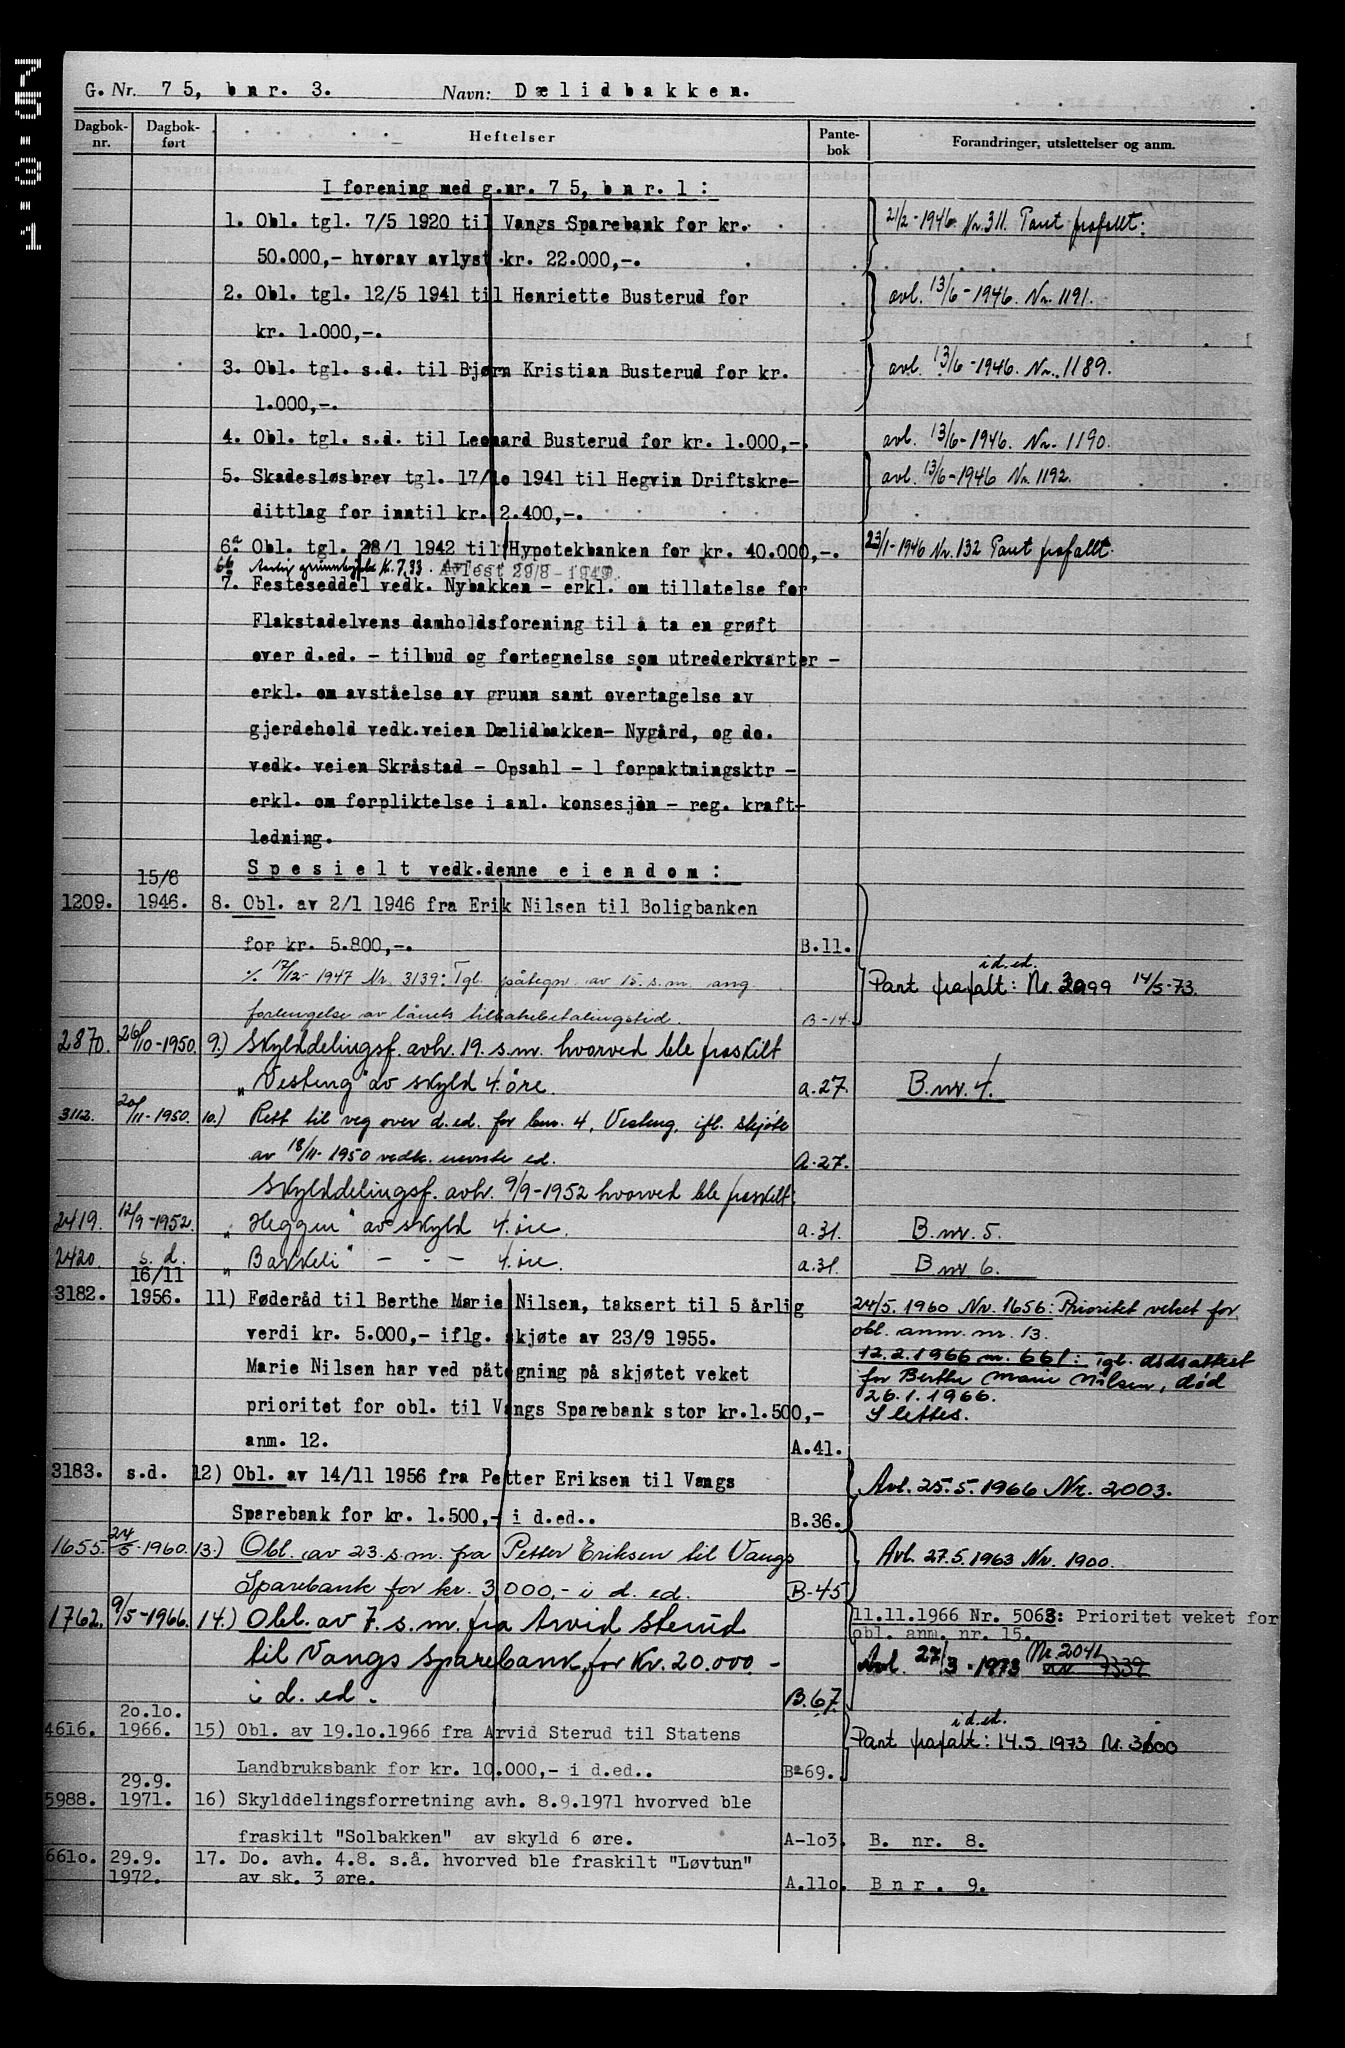 75-3-1
G. Nr. 75, bnr. 3. Navn: Dælidbakken.
Dagbok-nr. Dagbok-ført Heftelser Pante-bok Forandringer, utslettelser og anm.
I forening med g.nr. 75, bnr. 1:
1. Obl. tgl. 7/5 1920 til Vangs Sparebank for kr. 21/2-1946 Nr. 311. Pant frafallt.
50.000,- hvorav avlyst kr. 22.000,-.
2. Obl. tgl. 12/5 1941 til Henriette Busterud for avl. 13/6-1946. Nr. 1191.
kr. 1.000,-.
3. Obl. tgl. s.d. til Bjørn Kristian Busterud for kr. avl. 13/6-1946. Nr. 1189.
1.000,-.
4. Obl. tgl. s.d. til Leonard Busterud for kr. 1.000,-. avl. 13/6-1946. Nr. 1190.
5. Skadesløsbrev tgl. 17/10 1941 til Hegvin Driftskre- avl. 13/6-1946 Nr. 1192.
dittlag for inntil kr. 2.400,-.
6a Obl. tgl. 28/1 1942 til Hypotekbanken for kr. 40.000,-. 23/1-1946 Nr. 132 Pant frafallt.
6b Aarlig grunnbyrde k. 7,33. Avløst 29/8-1949.
7. Festeseddel vedk. Nybakken - erkl. om tillatelse for
Flakstadelvens damholdsforening til å ta en grøft
over d.ed. - tilbud og fortegnelse som utrederkvarter -
erkl. om avståelse av grunn samt overtagelse av
gjerdehold vedk.veien Dælidbakken- Nygård, og do.
vedk. veien Skråstad - Opsahl - 1 forpaktningsktr -
erkl. om forpliktelse i anl. konsesjon - reg. kraft-
ledning.
Spesielt vedk.denne eiendom:
15/6
1209. 1946. 8. Obl. av 2/1 1946 fra Erik Nilsen til Boligbanken
for kr. 5.800,-. B.11.
% 17/12-1947 Nr. 3139: Tgl. påtegn. av 15. s.m. ang. Pant frafalt: i d.ed. Nr. 3099 14/5-73.
forlengelse av lånets tilbakebetalingstid. B-14
2870. 26/10-1950. 9.) Skylddelingsf. avh. 19. s.m. hvorved ble fraskilt
"Vesteng" av skyld 4 øre. a.27. B.nr. 4.
3112. 20/11-1950. 10.) Rett til veg over d.ed. for bnr. 4, Vesteng, ifl. skjøte
av 18/11-1950 vedk. nevnte ed. A.27.
Skylddelingsf. avh. 9/9-1952 hvorved ble fraskilt:
2419. 12/9-1952. "Heggen" av skyld 4 øre. a.31. B.nr. 5.
2420. s.d. "Bakkeli" - - - 4 øre. a.31. B nr 6.
16/11
3182. 1956. 11) Føderåd til Berthe Marie Nilsen, taksert til 5 årlig 24/5.1960 Nr. 1656: Prioritet veket for
verdi kr. 5.000,- iflg. skjøte av 23/9 1955. obl. anm. nr. 13.
Marie Nilsen har ved påtegning på skjøtet veket 12.2.1966 nr. 661: Tgl. dødsattest
for Berthe Marie Nilsen, død
prioritet for obl. til Vangs Sparebank stor kr.1.500,- 26.1.1966.
Slettes.
anm. 12. A.41.
3183. s.d. 12) Obl. av 14/11 1956 fra Petter Eriksen til Vangs Avl. 25.5.1966 Nr. 2003.
Sparebank for kr. 1.500,- i d.ed.. B.36.
1655. 24/5-1960. 13.) Obl. av 23. s.m. fra Petter Eriksen til Vangs Avl. 27.5.1963 Nr. 1900.
Sparebank for kr. 3000,- i d. ed. B-45
1762. 9/5-1966. 14.) Obl. av 7. s.m. fra Arvid Sterud 11.11.1966 Nr. 5063: Prioritet veket for
obl. anm. nr. 15.
til Vangs Sparebank, for Kr. 20.000.- Avl. 27/3-1973 Nr. 2041 nr 7339
i d. ed. B.67.
20.10.
4616. 1966. 15) Obl. av 19.10.1966 fra Arvid Sterud til Statens Pant frafalt: i d.ed. 14.5.1973 Nr. 3100
Landbruksbank for kr. 10.000,- i d.ed.. B-69.
29.9.
5988. 1971. 16) Skylddelingsforretning avh. 8.9.1971 hvorved ble
fraskilt "Solbakken" av skyld 6 øre. A-103. B. nr. 8.
6610. 29.9. 17. Do. avh. 4.8. s.å. hvorved ble fraskilt "Løvtun"
1972. av sk. 3 øre. A.110. B nr. 9.